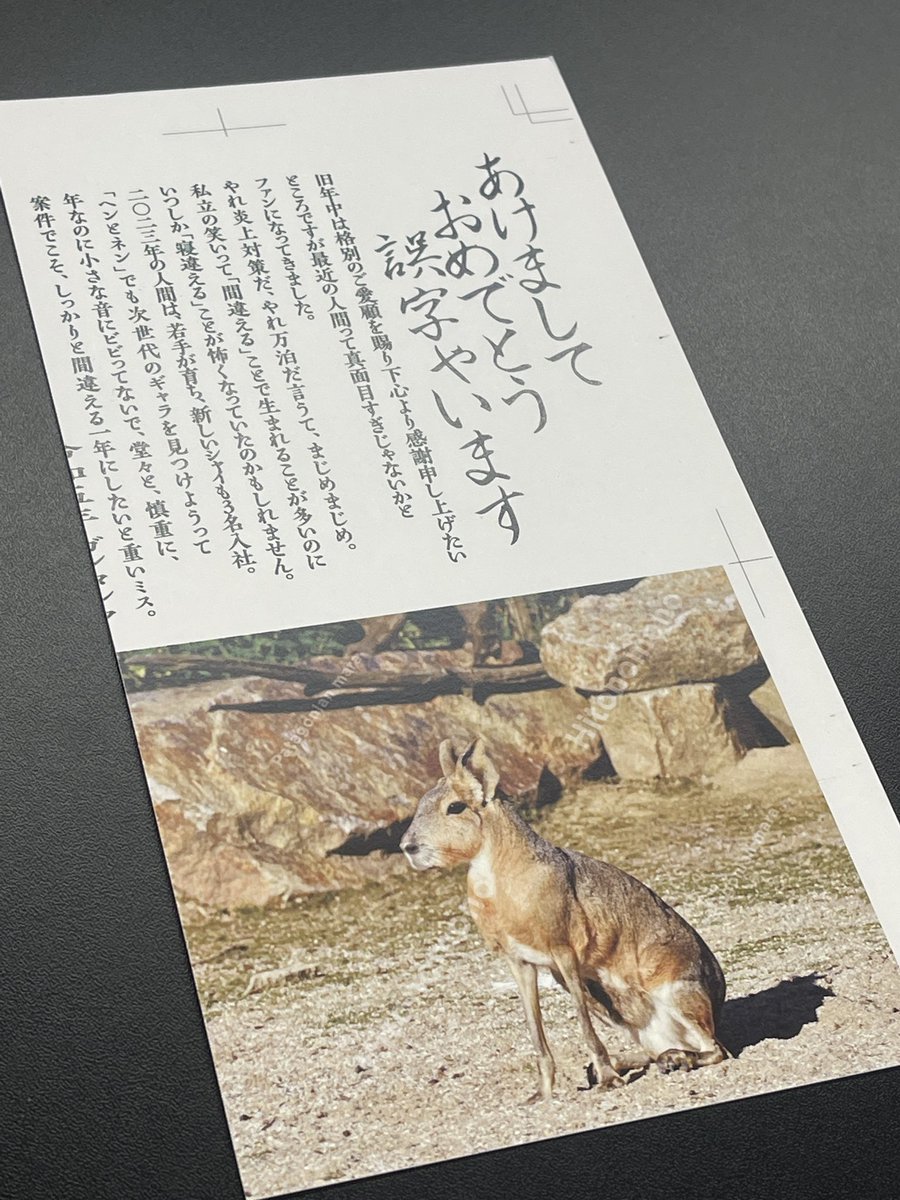 あけまして
おめでとう
誤字やいます
旧年中は格別のご愛顧を賜り下心より感謝申し上げたい
ところですが最近の人間って真面目すぎじゃないかと
ファンになってきました。
やれ炎上対策だ、やれ万泊だ言うて、まじめまじめ。
私立の笑いって「間違える」ことで生まれることが多いのに
いつしか「寝違える」ことが怖くなっていたのかもしれません。
二〇二三年の人間は、若手が育ち、新しいシャイも3名入社。
「ヘンとネン」でも次世代のギャラを見つけようって
年なのに小さな音にビビってないで、堂々と、慎重に、
案件でこそ、しっかりと間違える一年にしたいと重いミス。
Patagonian mara
Hitodoinobo